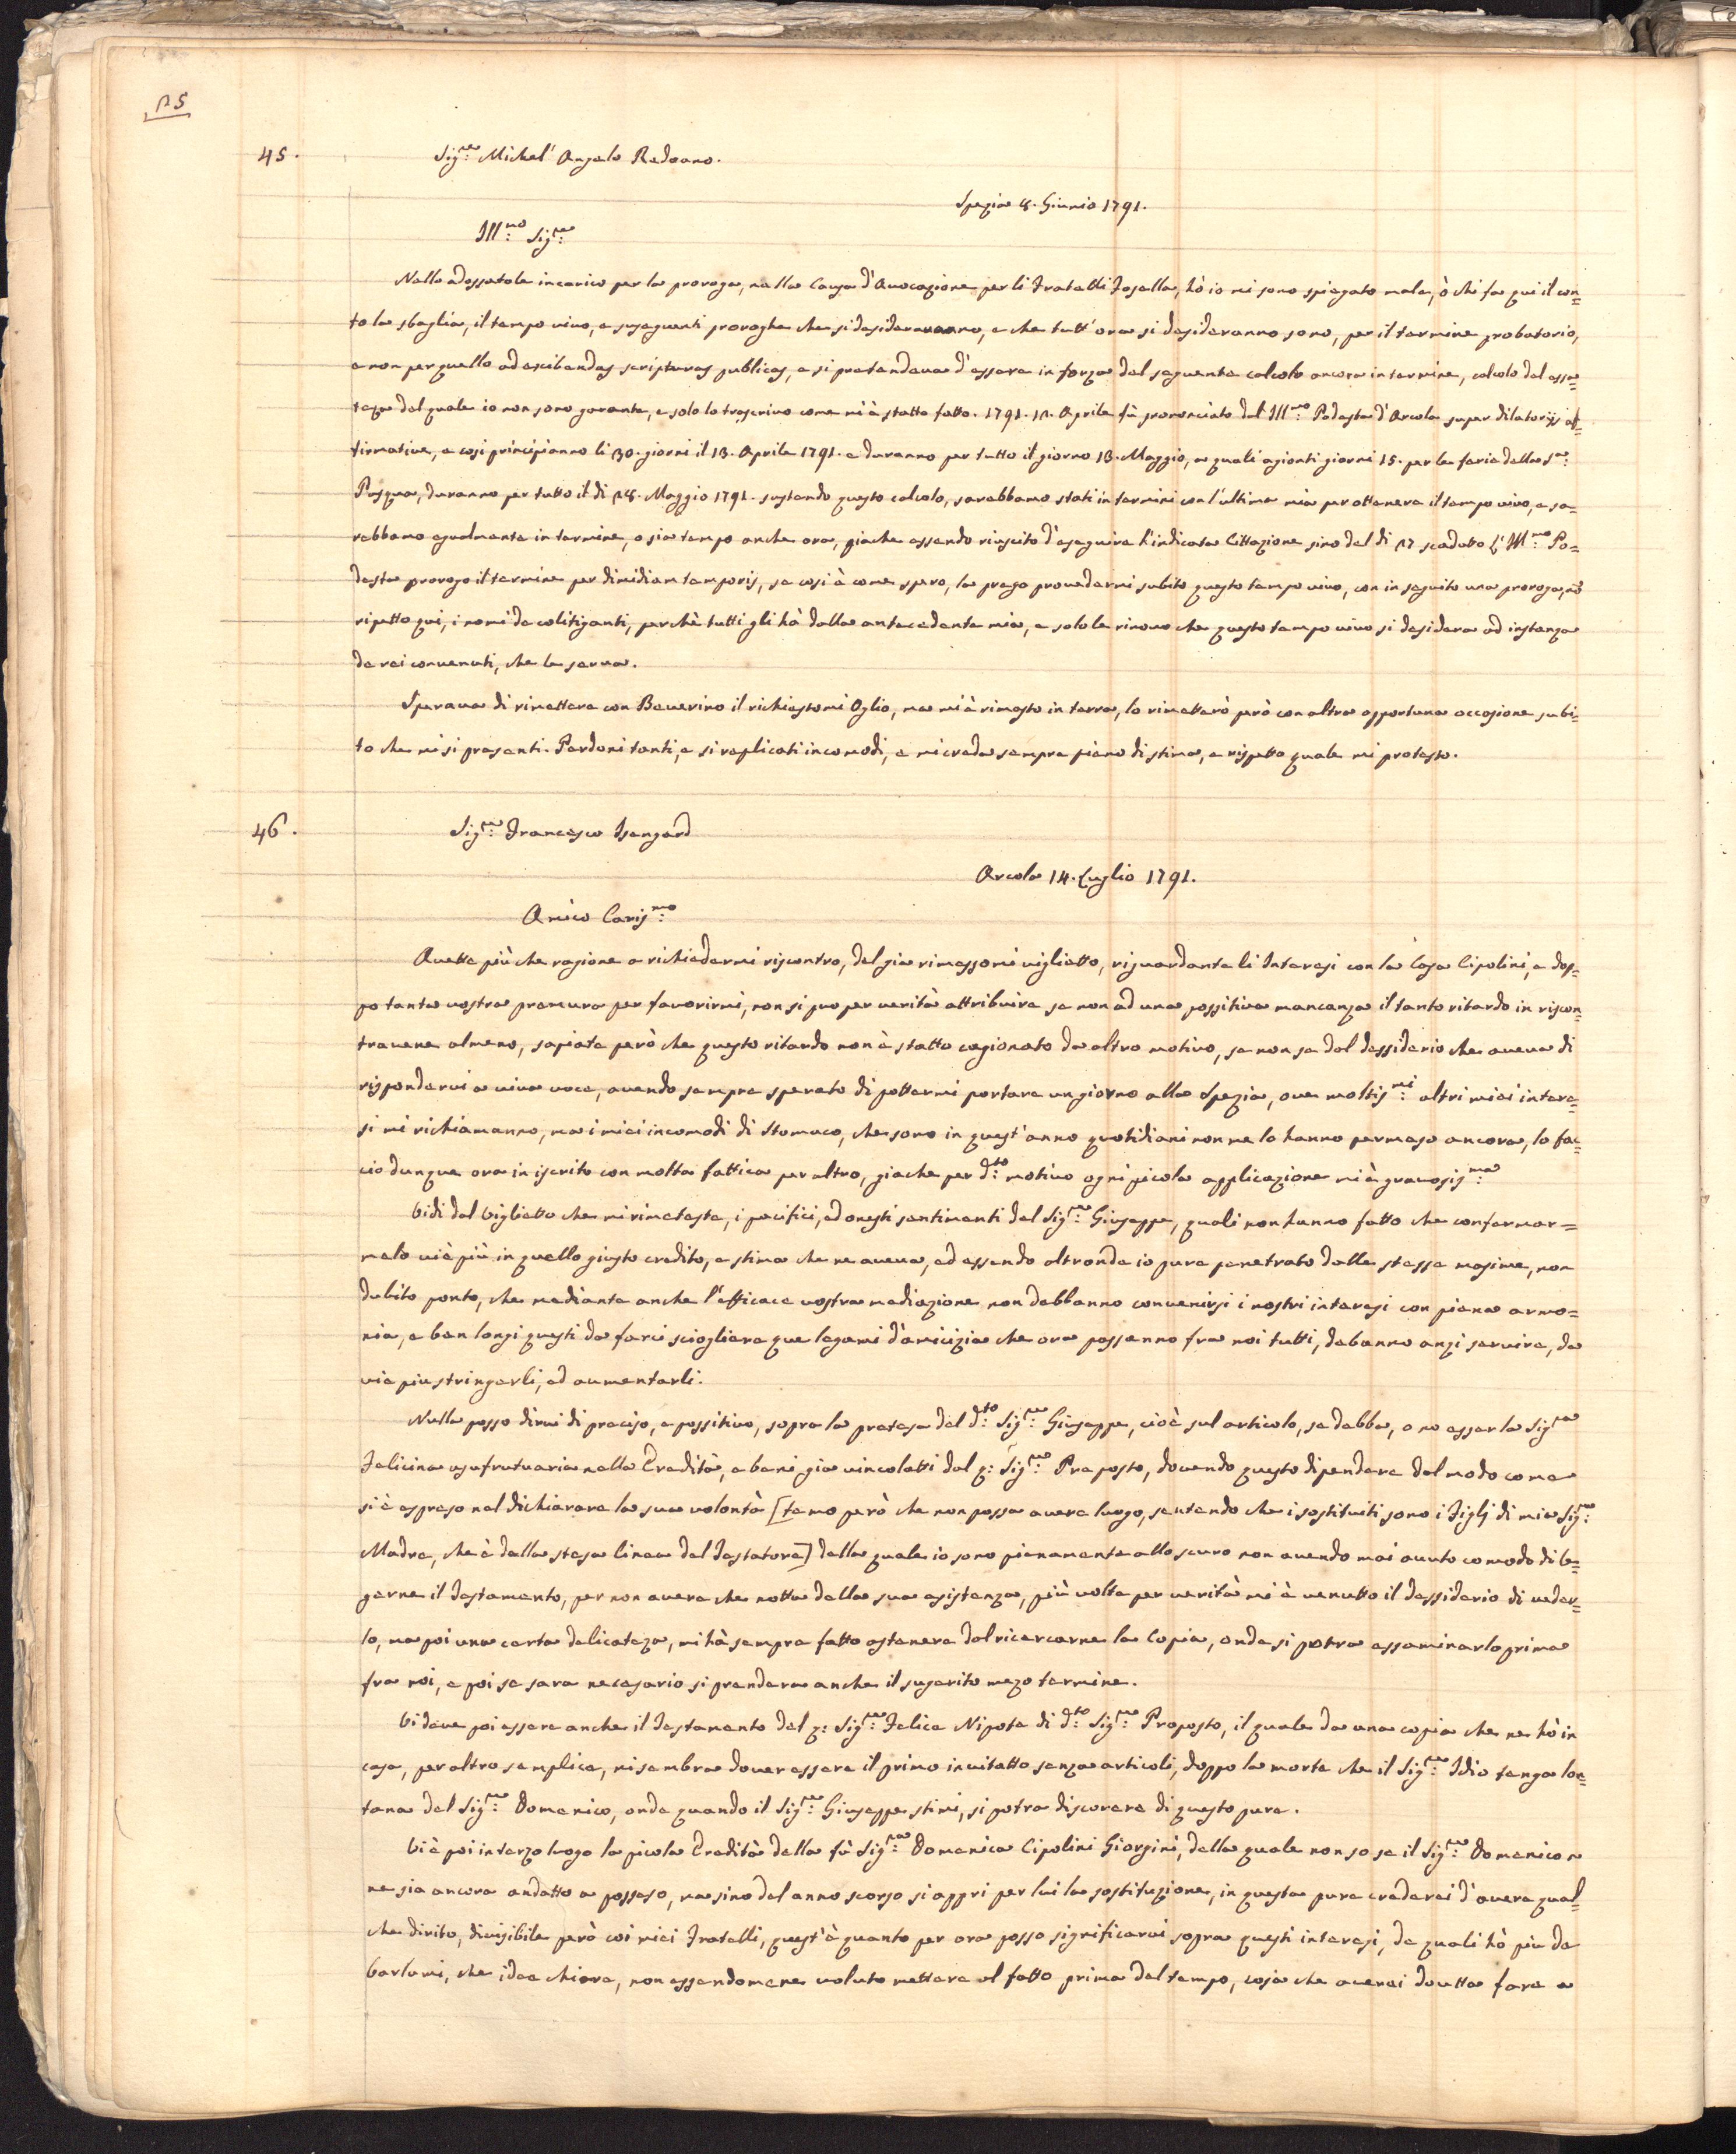 25
45. Sig:re Michel' Angelo Redoano.
Spezia 8. Giunio 1791.
Ill:mo Sig:re
Nello adossatole incarico per la proroga, nella Causa d'Avocazione per li Fratelli Fosella, hò io mi sono spiegato male, ò chi fa qui il con=
to la sbaglia, il tempo vivo, e susseguenti proroghe che si desideravanno, e che tutt'ora si desideranno sono, per il termine probatorio,
e non per quello ad exibendas scripturas publicas, e si pretendeva d'essere in forza del seguente calcolo ancora in termine, calcolo del esa=
teza del quale io non sono garante, e solo lo trascrivo come mi è statto fatto. 1791. 12. Aprile fù prononciato dal Ill:mo Podestà d'Arcola super dilatorijs af=
firmative, e cosi principianno li 30. giorni il 13. Aprile 1791. e duranno per tutto il giorno 13. Maggio, a quali agionti giorni 15. per le ferie della S:a
Pasqua, duranno per tutto il dì 28. Maggio 1791. sustando questo calcolo, sarebbamo stati in termini con l'ultima mia per ottenere il tempo vivo, e sa=
rebbamo egualmente in termine, o sia tempo anche ora, giache essendo riuscito d'eseguire l'indicata Cittazione sino del dì 27 scadutto l'Ill:mo Po=
destà prorogo il termine per dimidiam temporis, se cosi è come spero, la prego provedermi subito questo tempo vivo, con in seguito una proroga, nò
ripetto qui, i nomi de colitiganti, perchè tutti gli hà dalla antecedente mia, e solo le rinovo che questo tempo vivo si desidera ad instanza
de rei convenuti, che le serva.
Sperava di rimettere con Baverino il richiestomi Oglio, ma mi è rimasto in terra, lo rimetterò però con altra opportuna occasione subi=
to che mi si presenti. Perdoni tanti, e si replicati incomodi, e mi creda sempre pieno di stima, e rispetto quale mi protesto.
46. Sig:re Francesco Isengard
Arcola 14. Luglio 1791.
Amico Caris:mo
Avette più che ragione a richiedermi riscontro, del gia rimessomi viglietto, risguardante li Interesi con la Casa Cipolini, e dop=
po tanta vostra premura per favorirmi, non si puo per verità attribuire se non ad una possitiva mancanza il tanto ritardo in riscon=
travene almeno, sapiate però che questo ritardo non è statto cagionato da altro motivo, se non se dal dessiderio che aveva di
rispondervi a viva voce, avendo sempre sperato di pottermi portare un giorno alla Spezia, ove moltis:mi altri miei intere=
si mi richiamanno, ma i miei incomodi di Stomaco, che sono in quest'anno quotidiani non me lo hanno permeso ancora, lo fac=
cio dunque ora in iscrito con molta fattica per altro, giache per d:to motivo ogni picola applicazione mi è gravosis:ma
Vidi dal Viglietto che mi rimeteste, i pacifici, ed onesti sentimenti del Sig:re Giuseppe, quali non hanno fatto che confermar=
melo viè più in quello giusto credito, e stima che ne aveva, ed essendo altronde io pure penetrato dalle stesse masime, non
dubito ponto, che mediante anche l'efficace vostra mediazione non debbanno convenirsi i nostri interesi con piena armo=
nia, e ben longi questi da farci sciogliere que legami d'amicizia che ora passanno fra noi tutti, debanno anzi servire, da
vie piu stringerli, ed aumentarli.
Nulla posso dirvi di preciso, e possitivo, sopra la pretesa del d:to Sig:re Giuseppe, cioè sul articolo, se debba, o no esser la Sig:ra
Felicina usufrutuaria nella Eredità, e beni gia vincolatti dal q: Sig:re Preposto, dovendo questo dipendere dal modo come
si è espreso nel dichiarare la sua volontà [temo però che non possa avere luogo, sentendo che i sostituiti sono i Figlj di mia Sig:ra
Madre, che è dalla stesa linea del Testatore] della quale io sono pienamente allo scuro non avendo mai avuto comodo di le=
gerne il Testamento, per non avere che notta della sua esistenza, più volte per verità mi è venutto il dessiderio di veder=
lo, ma poi una certa delicateza, mi hà sempre fatto astenere dal ricercarne la Copia, onde si potra essaminarlo prima
fra noi, e poi se sara necesario si prendera anche il sugerito mezo termine.
Vi deve poi essere anche il Testamento del q: Sig:re Felice Nipote di d:to Sig:re Preposto, il quale da una copia che ne hò in
casa, per altro semplice, mi sembra dover essere il primo invitatto senza articoli, doppo la morte che il Sig:re Idio tenga lon=
tana del Sig:re Domenico, onde quando il Sig:re Giuseppe stimi, si potra discorere di questo pure.
Vi è poi in terzo luogo la picola Eredità della fù Sig:ra Domenica Cipolini Giorgini, della quale non so se il Sig:re Domenico
ne sia ancora andatto a possesso, ma sino del anno scorso si apprì per lui la sostituzione, in questa pure crederei d'avere qual=
che dirito, divisibile però coi miei Fratelli, quest'è quanto per ora posso significarvi sopra questi interesi, de quali hò più de
barlumi, che idee chiare, non essendomene voluto mettere al fatto prima del tempo, cosa che averei dovutto fare a